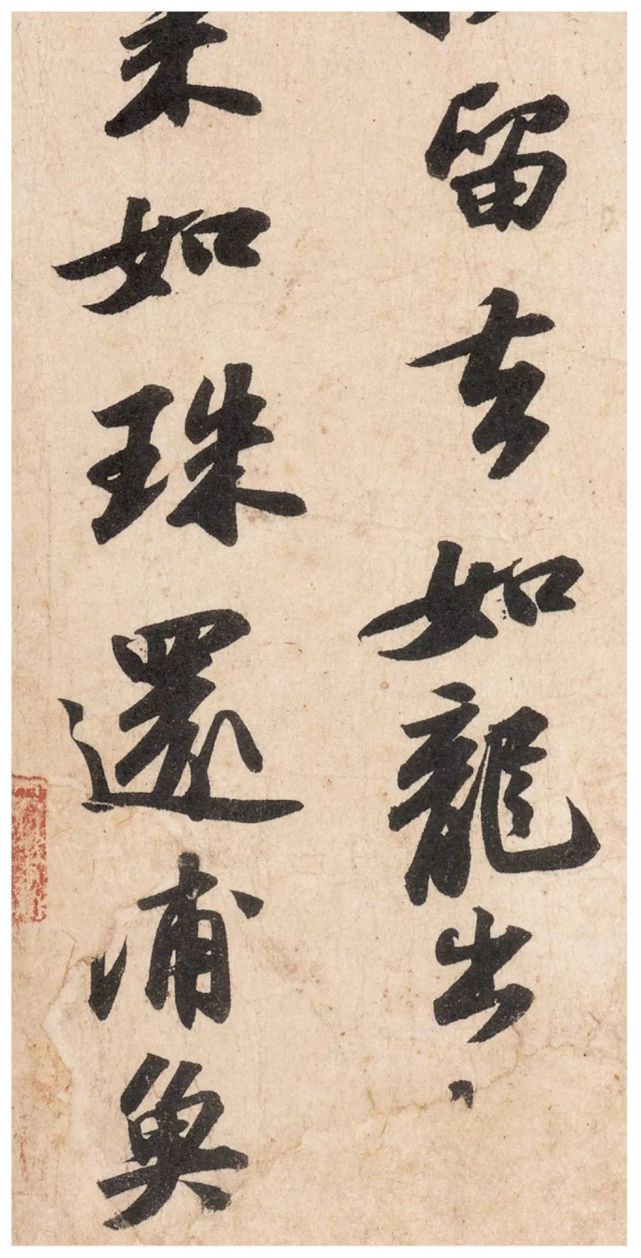 留去如龍出、
來如珠還浦魚